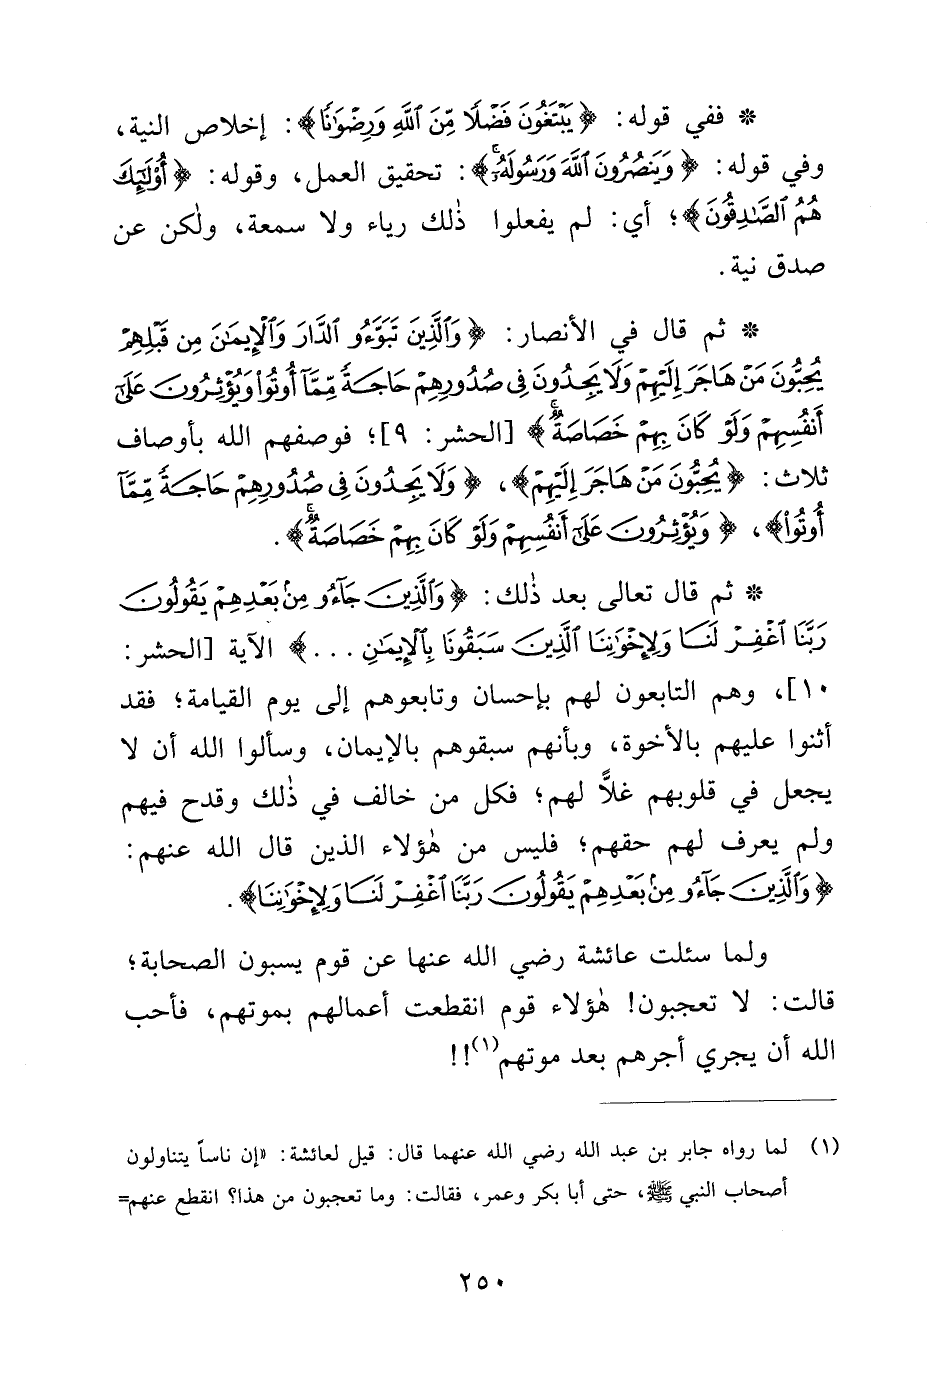 * ففي قوله: ﴿يَبْتَغُونَ فَضْلًا مِّنَ ٱللَّهِ وَرِضْوَٰنًا﴾: إخلاص النية،
وفي قوله: ﴿وَيَنصُرُونَ ٱللَّهَ وَرَسُولَهُۥٓۚ﴾: تحقيق العمل، وقوله: ﴿أُوْلَٰٓئِكَ
هُمُ ٱلصَّٰدِقُونَ﴾؛ أي: لم يفعلوا ذٰلك رياء ولا سمعة، ولٰكن عن
صدق نية.
* ثم قال في الأنصار: ﴿وَٱلَّذِينَ تَبَوَّءُو ٱلدَّارَ وَٱلْإِيمَٰنَ مِن قَبْلِهِمْ
يُحِبُّونَ مَنْ هَاجَرَ إِلَيْهِمْ وَلَا يَجِدُونَ فِى صُدُورِهِمْ حَاجَةً مِّمَّآ أُوتُوا۟ وَيُؤْثِرُونَ عَلَىٰٓ
أَنفُسِهِمْ وَلَوْ كَانَ بِهِمْ خَصَاصَةٌۚ﴾ [الحشر: ٩]؛ فوصفهم الله بأوصاف
ثلاث: ﴿يُحِبُّونَ مَنْ هَاجَرَ إِلَيْهِمْ﴾، ﴿وَلَا يَجِدُونَ فِى صُدُورِهِمْ حَاجَةً مِّمَّآ
أُوتُوا۟﴾، ﴿وَيُؤْثِرُونَ عَلَىٰٓ أَنفُسِهِمْ وَلَوْ كَانَ بِهِمْ خَصَاصَةٌۚ﴾.
* ثم قال تعالى بعد ذٰلك: ﴿وَٱلَّذِينَ جَآءُو مِنۢ بَعْدِهِمْ يَقُولُونَ
رَبَّنَا ٱغْفِرْ لَنَا وَلِإِخْوَٰنِنَا ٱلَّذِينَ سَبَقُونَا بِٱلْإِيمَٰنِ ...﴾ الآية [الحشر:
١٠]، وهم التابعون لهم بإحسان وتابعوهم إلى يوم القيامة؛ فقد
أثنوا عليهم بالأخوة، وبأنهم سبقوهم بالإيمان، وسألوا الله أن لا
يجعل في قلوبهم غلاًّ لهم؛ فكل من خالف في ذٰلك وقدح فيهم
ولم يعرف لهم حقهم؛ فليس من هٰؤلاء الذين قال الله عنهم:
﴿وَٱلَّذِينَ جَآءُو مِنۢ بَعْدِهِمْ يَقُولُونَ رَبَّنَا ٱغْفِرْ لَنَا وَلِإِخْوَٰنِنَا﴾.
ولما سئلت عائشة رضي الله عنها عن قوم يسبون الصحابة؛
قالت: لا تعجبون! هٰؤلاء قوم انقطعت أعمالهم بموتهم، فأحب
الله أن يجري أجرهم بعد موتهم(١)!!
(١) لما رواه جابر بن عبد الله رضي الله عنهما قال: قيل لعائشة: «إن ناساً يتناولون
أصحاب النبي ﷺ، حتى أبا بكر وعمر، فقالت: وما تعجبون من هذا؟ انقطع عنهم=
٢٥٠